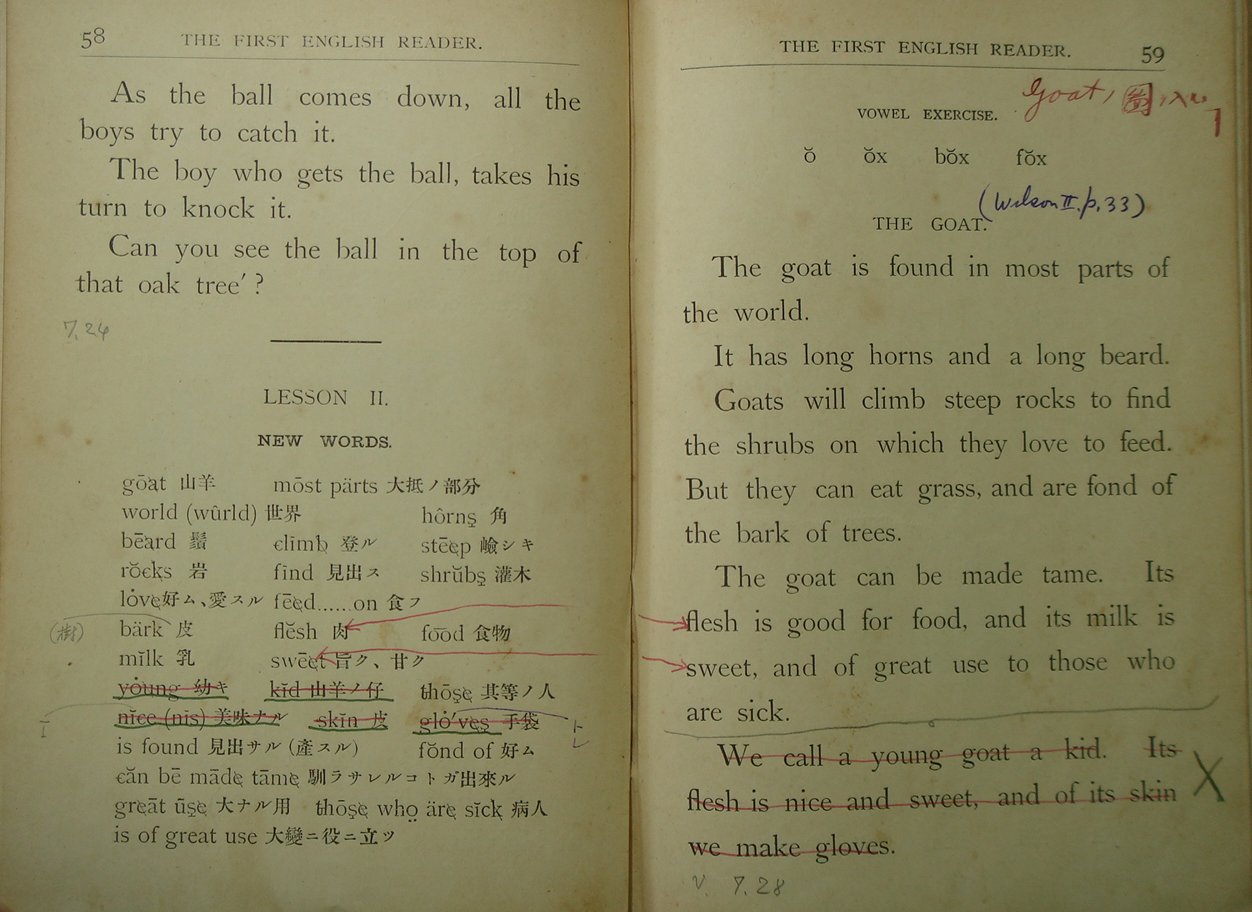 58 THE FIRST ENGLISH READER.
As the ball comes down, all the
boys try to catch it.
The boy who gets the ball, takes his
turn to knock it.
Can you see the ball in the top of
that oak tree′ ?
7.24
LESSON II.
NEW WORDS.
gōat 山羊 mōst pärts 大抵ノ部分
world (wûrld) 世界 hôrnş 角
bēard 鬚 climb 登ル stēep 嶮シキ
rŏcks 岩 find 見出ス shrŭbş 灌木
lòve好ム、愛スル fēed......on 食フ
(樹) bärk 皮 flĕsh 肉 fōod 食物
mĭlk 乳 swēet 旨ク、甘ク
yòung 幼キ kĭd 山羊ノ仔 thōşe 其等ノ人
nīce (nīs) 美味ナル skĭn 皮 glò′veş 手袋
is found 見出サル (產スル) fŏnd of 好ム
căn bē māde tāme 馴ラサレルコトガ出來ル
greāt ūşe 大ナル用 thōşe who äre sĭck 病人
is of great use 大變ニ役ニ立ツ
THE FIRST ENGLISH READER. 59
Goat, 圖
VOWEL EXERCISE.
ŏ ŏx bŏx fŏx
(Wilson II. p. 33)
THE GOAT.
The goat is found in most parts of
the world.
It has long horns and a long beard.
Goats will climb steep rocks to find
the shrubs on which they love to feed.
But they can eat grass, and are fond of
the bark of trees.
The goat can be made tame. Its
flesh is good for food, and its milk is
sweet, and of great use to those who
are sick.
We call a young goat a kid. Its
flesh is nice and sweet, and of its skin
we make gloves.
V. 7.28